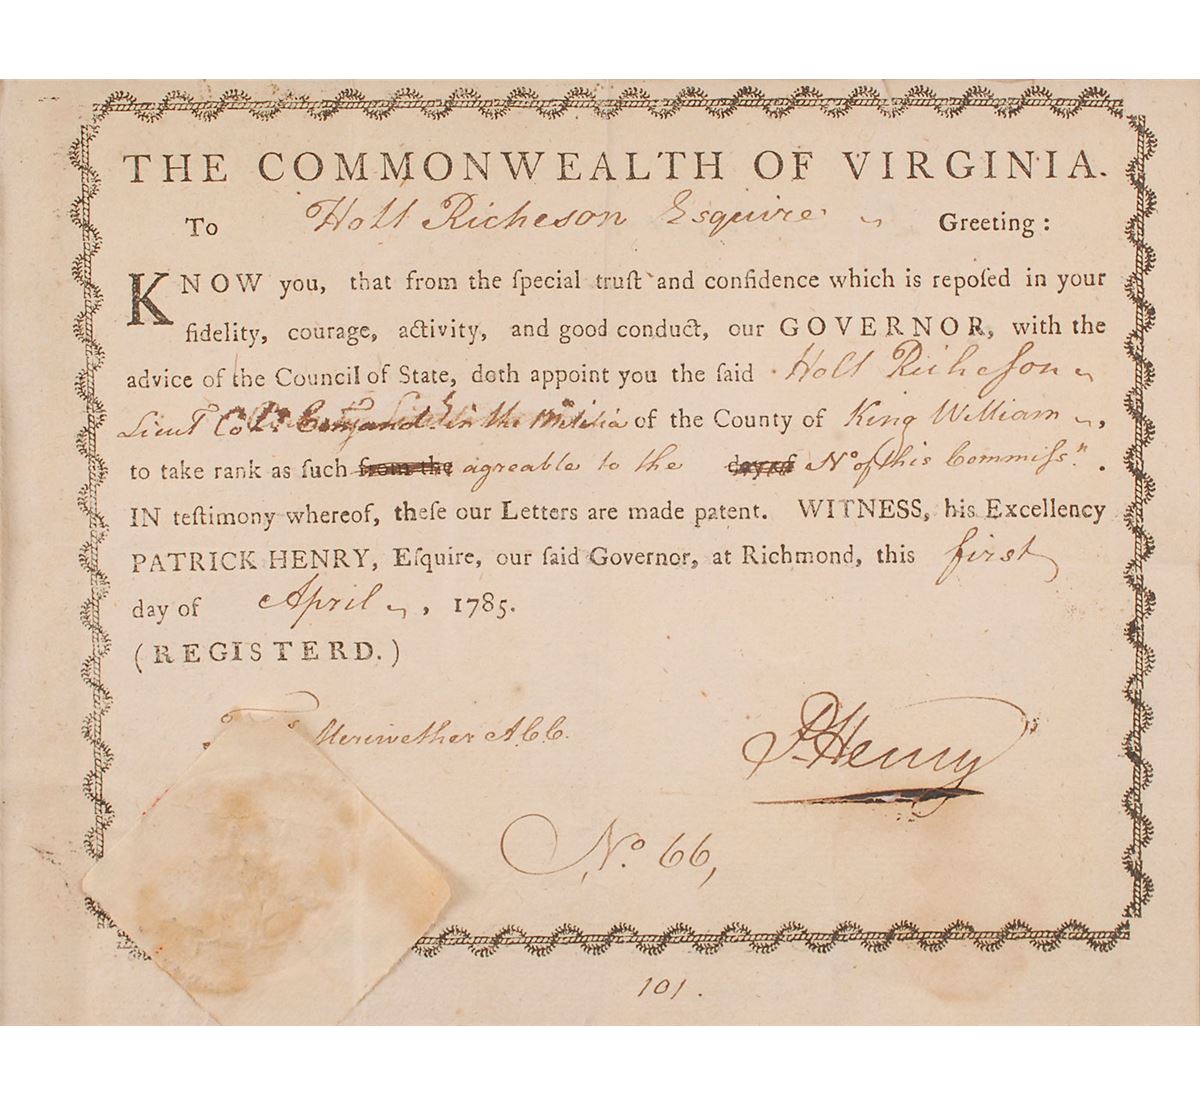 THE COMMONWEALTH OF VIRGINIA.
To Holt Richeson Esquire Greeting:
KNOW you, that from the ſpecial truſt and confidence which is repoſed in your
fidelity, courage, activity, and good conduct, our GOVERNOR, with the
advice of the Council of State, doth appoint you the ſaid Holt Richeſon
Lieut Col. in the Militia of the County of King William,
to take rank as ſuch from the agreable to the day of No of this Commiſsn.
IN teſtimony whereof, theſe our Letters are made patent. WITNESS, his Excellency
PATRICK HENRY, Eſquire, our ſaid Governor, at Richmond, this first
day of April, 1785.
(REGISTERD.)
Meriwether
P. Henry
No. 66,
101.